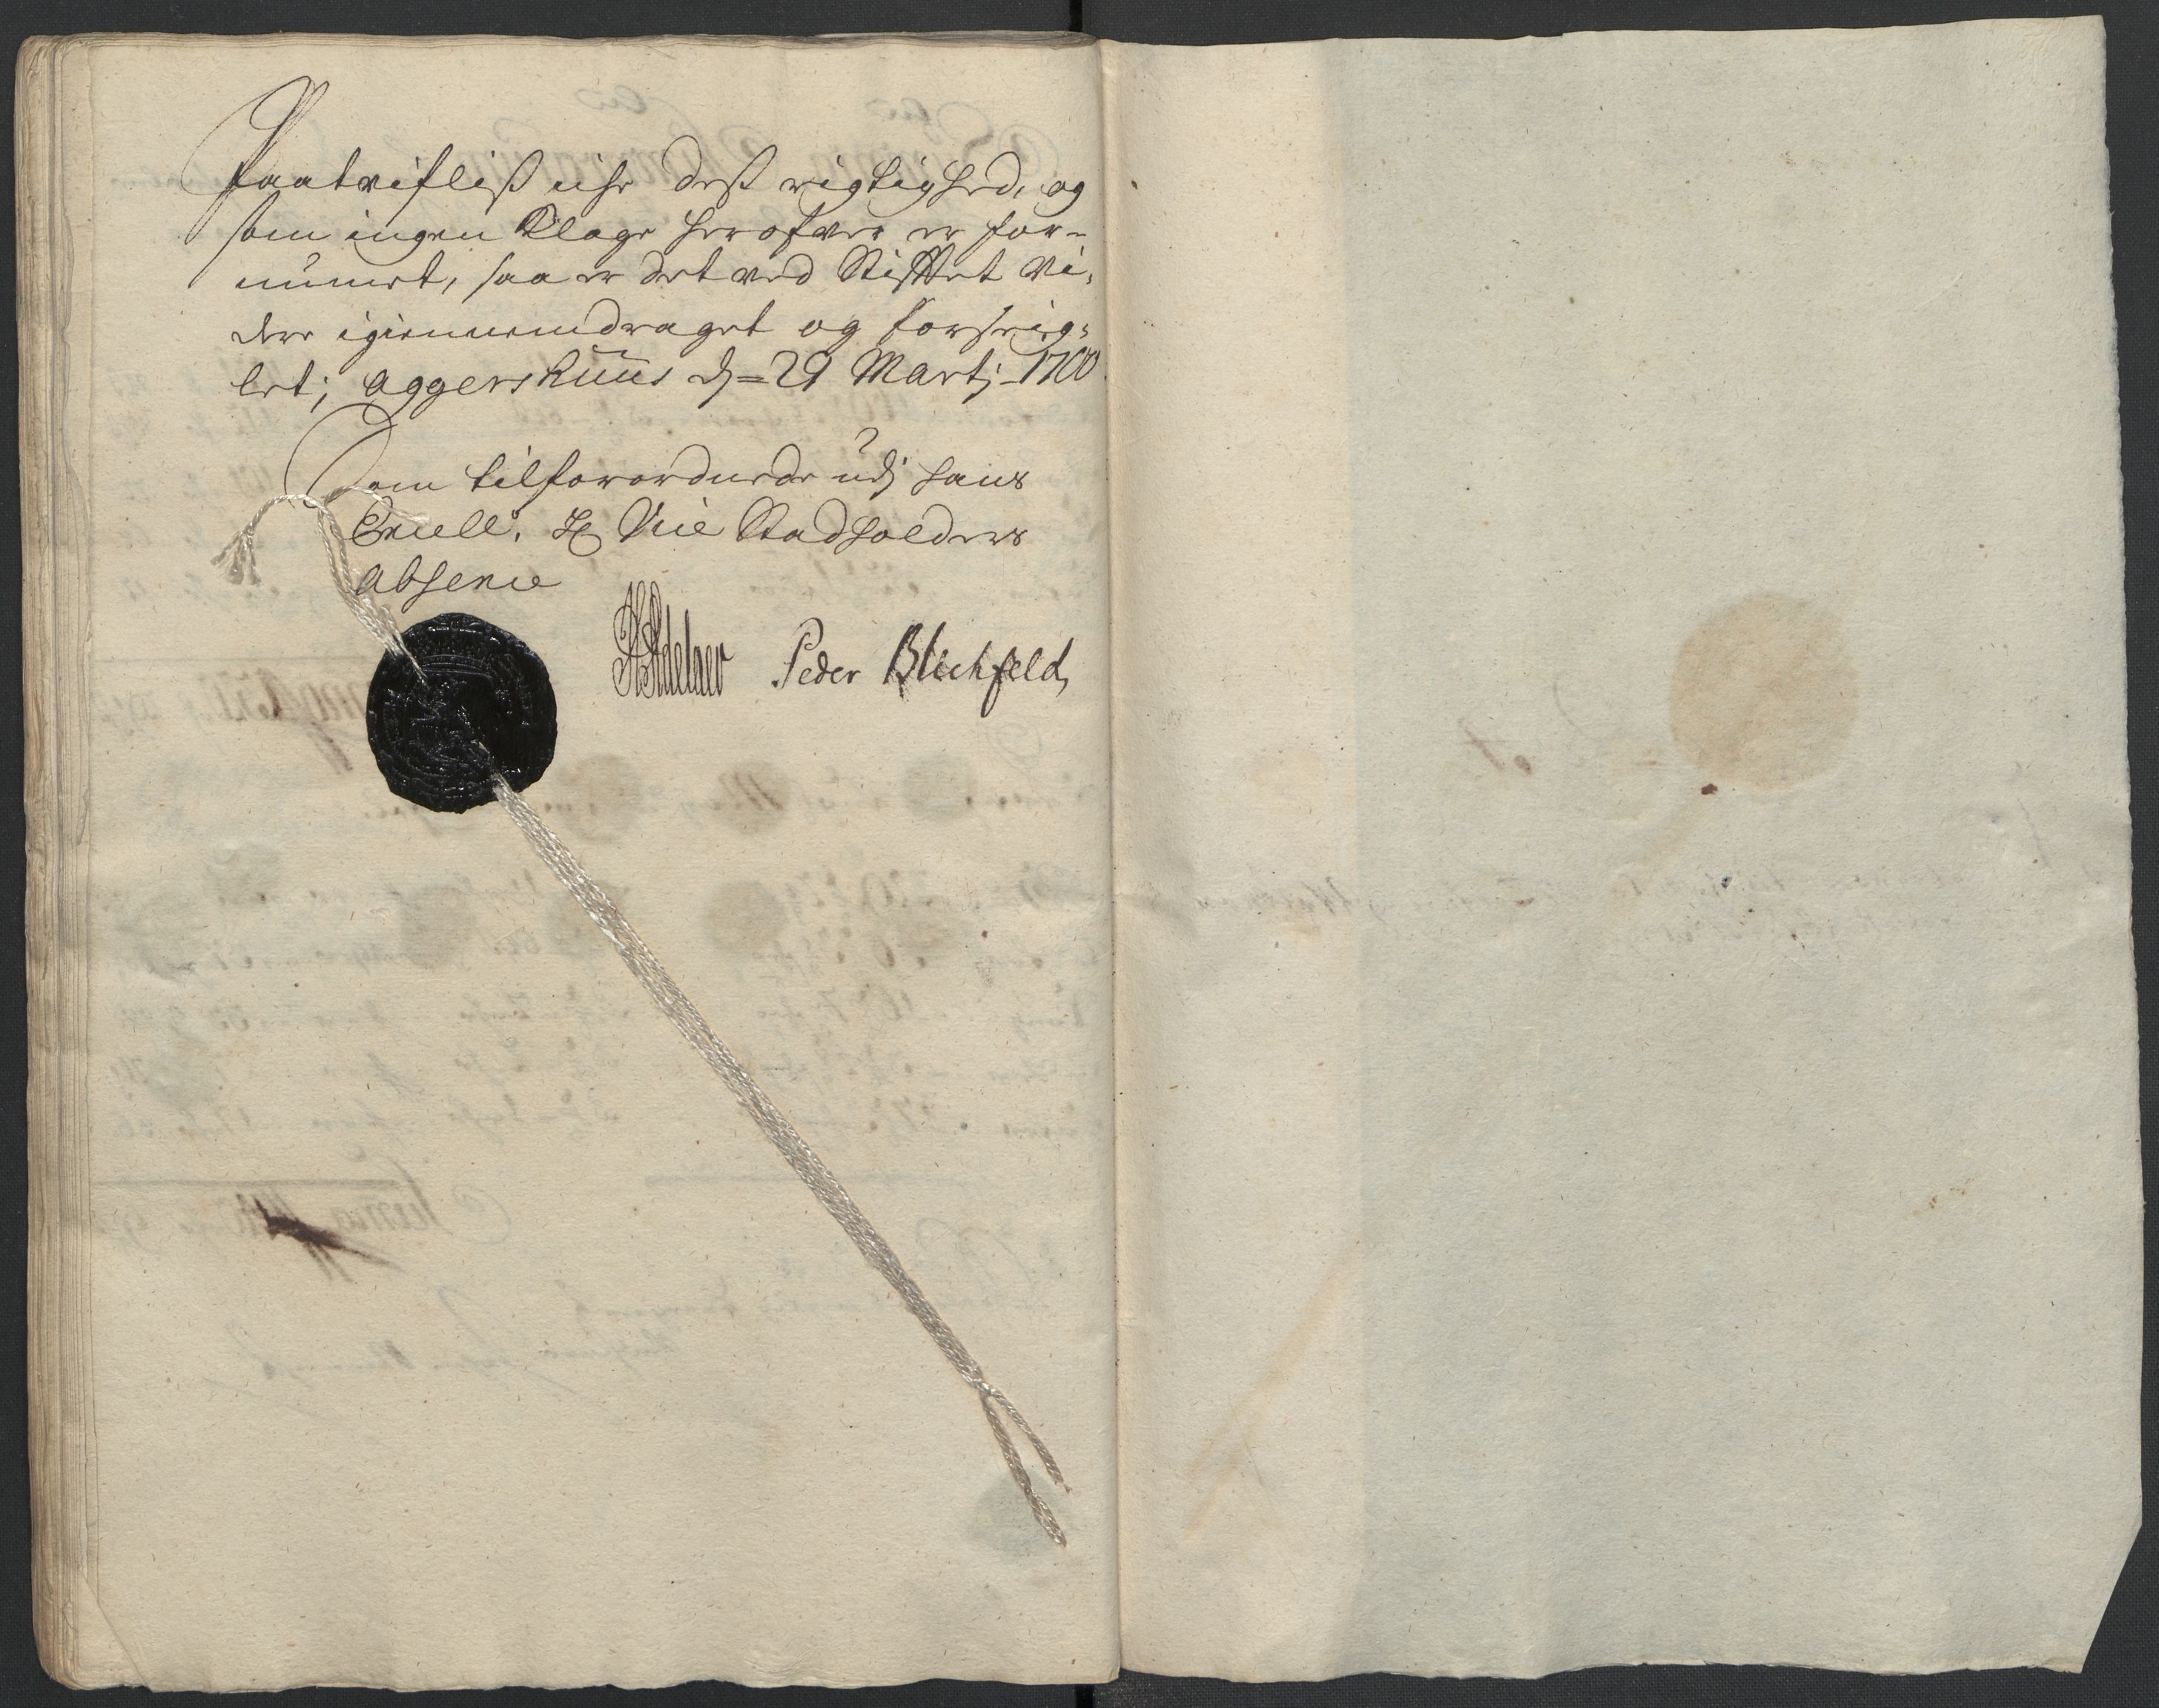 Paatvifliß iche deß rigtighed, og
som ingen Klage herofver er for-
nummet, saa er det ved Stifftet vi,
dere igiennemdraget og forseig-
let; Aggershuus d= 29 Martj 1700
Som tilforordnede udj hans
Excell. H Vice Stadholders
Absence
Adelaer Peder Blichfeld,